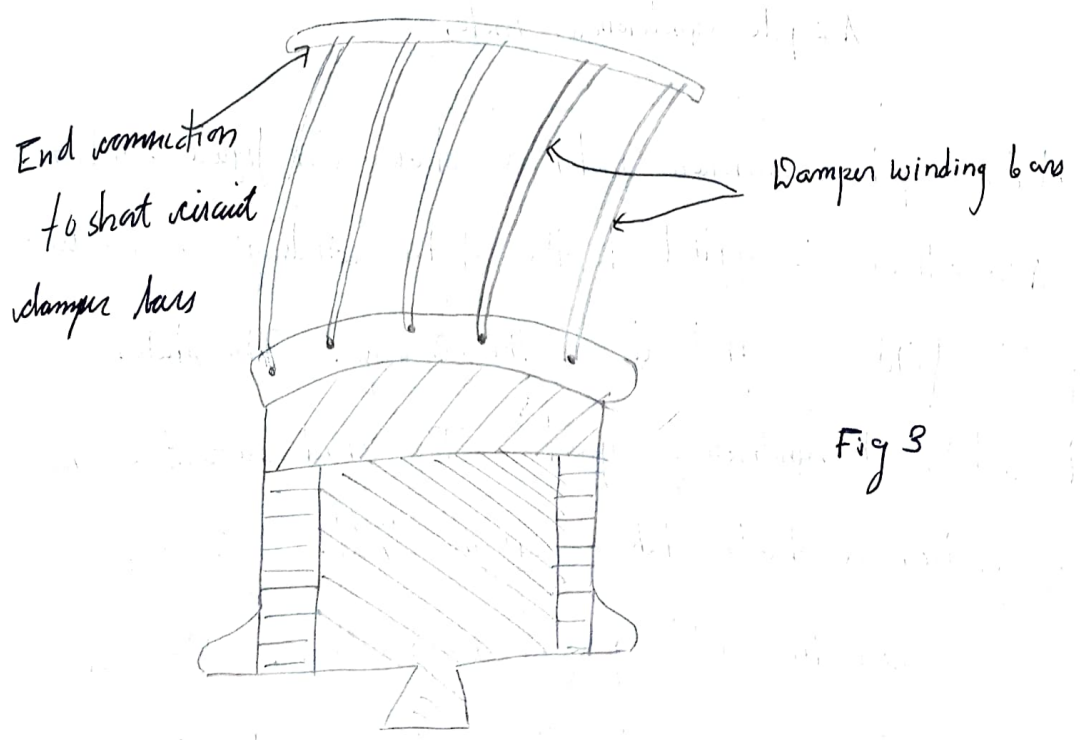 End connection
to short circuit
damper bars
Damper winding bars
Fig 3